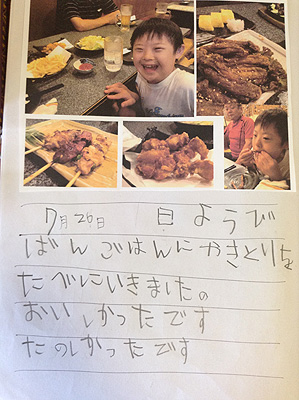 7月26日 日ようび
ばんごはんにやきとりを
たべにいきました。
おいしかったです
たのしかったです